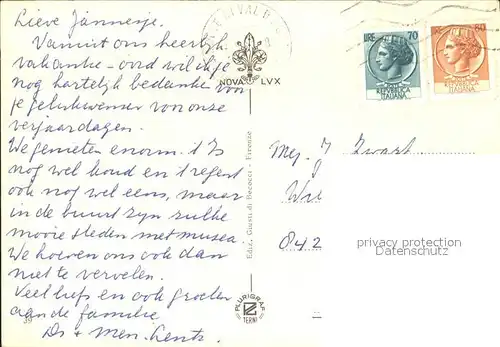 Lieve Jannesje.
Vanuit ons heerlijk
vakantie-oord wil ik je
nog hartelijk bedanken voor
je gelukwensen voor onze
verjaardagen.
We genieten enorm. 't Is
nog wel koud en 't regent
ook nog wel eens, maar
in de buurt zijn zulke
mooie steden met musea.
We hoeven ons ook dan
niet te vervelen.
Veel liefs en ook groeten
aan de familie
Ds + Mevr.
NOVA LVX
LIRE 70
REPVBBLICA
ITALIANA
80
REPVBBLICA
ITALIANA
Ediz. Giusti di Becocci - Firenze
Mej. J. Zwart
842
privacy protection
Datenschutz
PLURIGRAF
TERNI